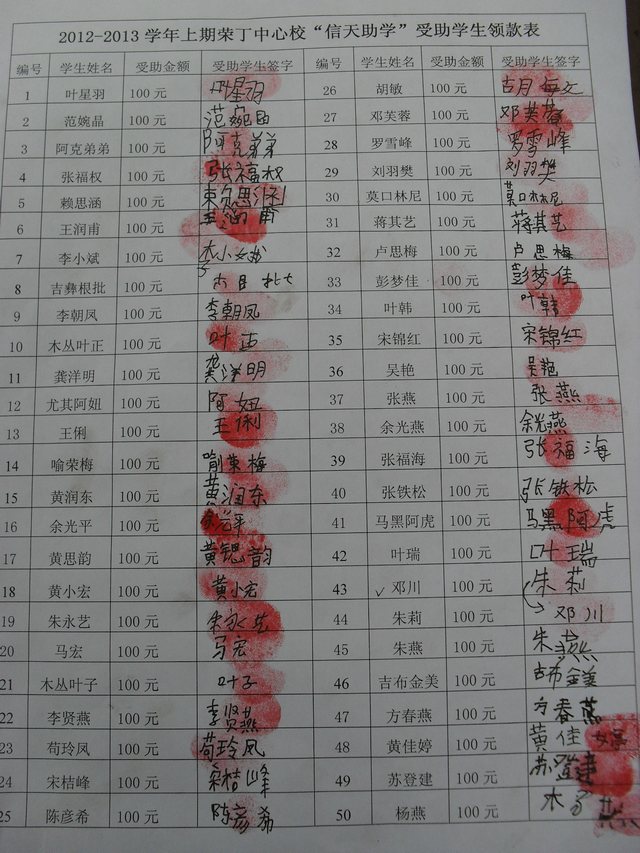 2012-2013 学年上期荣丁中心校“信天助学”受助学生领款表
编号 学生姓名 受助金额 受助学生签字 编号 学生姓名 受助金额 受助学生签字
1 叶星羽 100 元 叶星羽 26 胡敏 100 元 胡敏
2 范婉晶 100 元 范婉晶 27 邓芙蓉 100 元 邓芙蓉
3 阿克弟弟 100 元 阿克弟弟 28 罗雪峰 100 元 罗雪峰
4 张福权 100 元 张福权 29 刘羽樊 100 元 刘羽樊
5 赖思涵 100 元 赖思涵 30 莫口林尼 100 元 莫口林尼
6 王润甫 100 元 王润甫 31 蒋其艺 100 元 蒋其艺
7 李小斌 100 元 32 卢思梅 100 元 卢思梅
8 吉彝根批 100 元 33 彭梦佳 100 元 彭梦佳
9 李朝凤 100 元 李朝凤 34 叶韩 100 元 叶韩
10 木丛叶正 100 元 叶正 35 宋锦红 100 元 宋锦红
11 龚洋明 100 元 龚洋明 36 吴艳 100 元 吴艳
12 尤其阿妞 100 元 阿妞 37 张燕 100 元 张燕
13 王俐 100 元 王俐 38 余光燕 100 元 余光燕
14 喻荣梅 100 元 喻荣梅 39 张福海 100 元 张福海
15 黄润东 100 元 黄润东 40 张铁松 100 元 张铁松
16 余光平 100 元 余光平 41 马黑阿虎 100 元 马黑阿虎
17 黄思韵 100 元 黄锶韵 42 叶瑞 100 元 叶瑞
18 黄小宏 100 元 黄小宏 43 ✓邓川 100 元 朱莉
19 朱永艺 100 元 朱永艺 44 朱莉 100 元 邓川
20 马宏 100 元 马宏 45 朱燕 100 元 朱燕
21 木丛叶子 100 元 叶子 46 吉布金美 100 元 吉布金美
22 李贤燕 100 元 李贤燕 47 方春燕 100 元 方春燕
23 苟玲凤 100 元 苟玲凤 48 黄佳婷 100 元 黄佳婷
24 宋桔峰 100 元 宋桔峰 49 苏登建 100 元 苏登建
25 陈彦希 100 元 陈彦希 50 杨燕 100 元